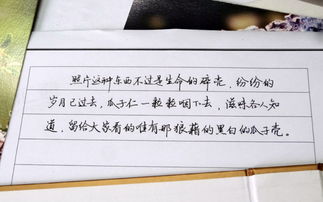 照片这种东西不过是生命的碎壳，纷纷的
岁月已过去，瓜子仁一粒粒咽下去，滋味各人知
道，留给大家看的唯有那狼藉的黑白的瓜子壳。